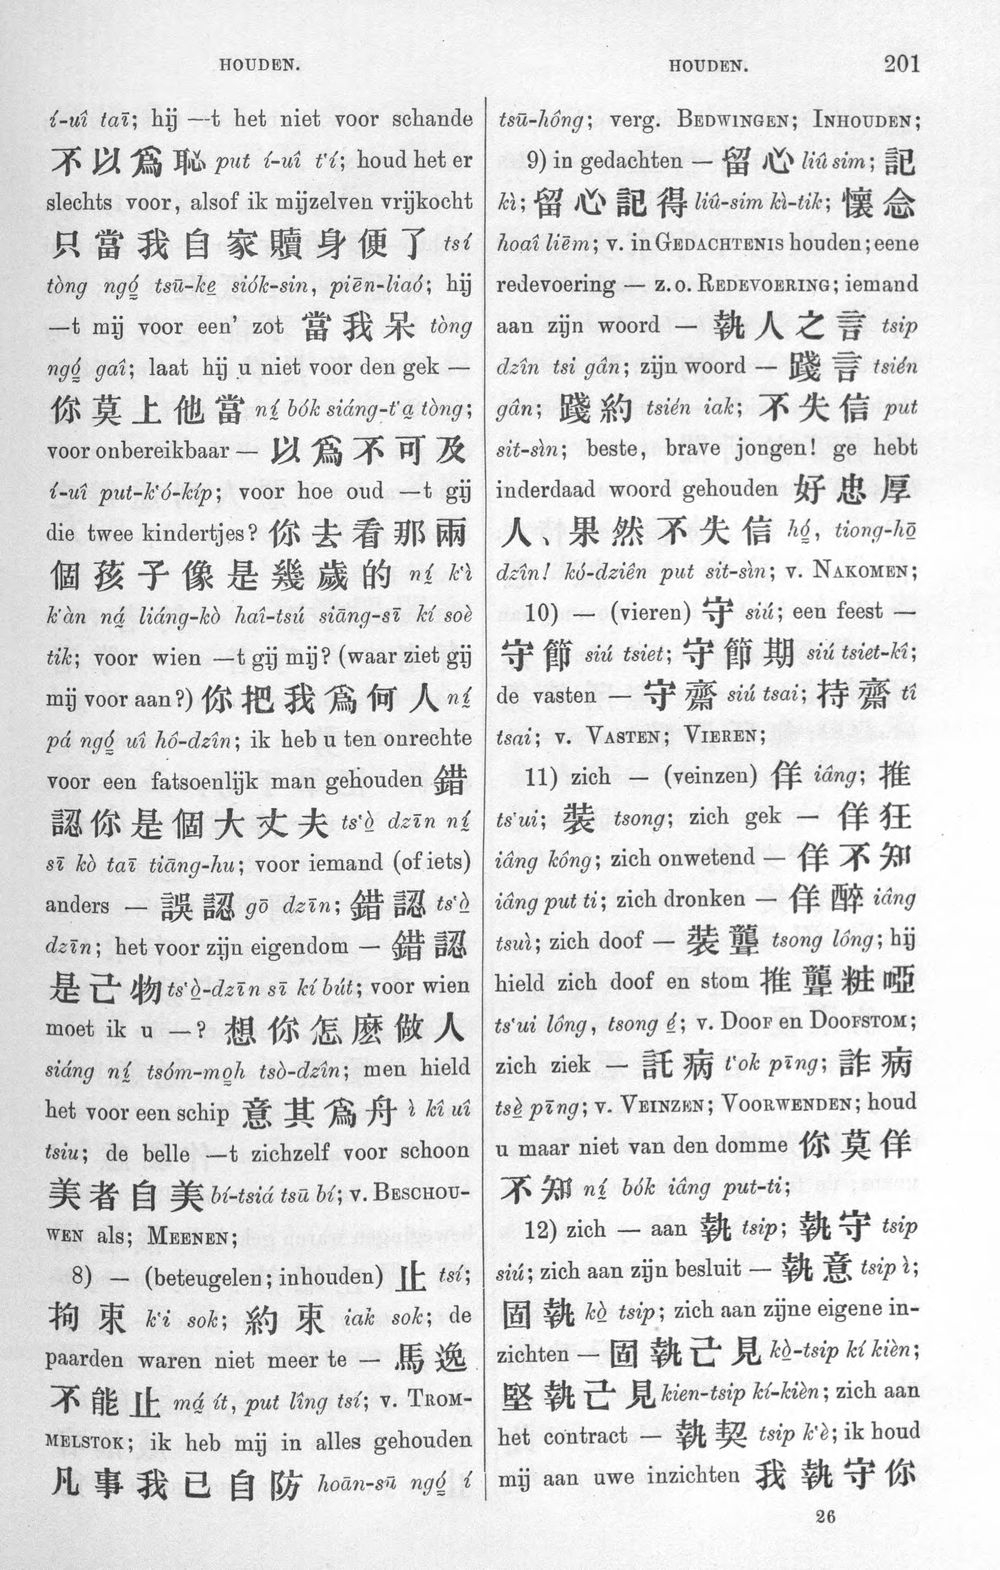 HOUDEN.
HOUDEN. 201
í-uî taī; hij —t het niet voor schande
不以爲恥 put í-uî t'í; houd het er
slechts voor, alsof ik mijzelven vrijkocht
只當我自家贖身便了 tsí
tòng ngó̤ tsū-ke̤ siók-sin, piēn-liaó; hij
—t mij voor een' zot 當我呆 tòng
ngó̤ gaî; laat hij u niet voor den gek —
你莫上他當 ní̤ bók siáng-t'a̤ tòng;
voor onbereikbaar — 以爲不可及
í-uî put-k'ó-kíp; voor hoe oud —t gij
die twee kindertjes? 你去看那兩
個孩子像是幾歲的 ní̤ k'ì
k'àn ná̤ liáng-kò haî-tsú siāng-sī kí soè
tik; voor wien —t gij mij? (waar ziet gij
mij voor aan?) 你把我爲何人 ní̤
pá ngó̤ uî hô-dzîn; ik heb u ten onrechte
voor een fatsoenlijk man gehouden 錯
認你是個大丈夫 ts'ò̤ dzīn ní̤
sī kò taī tiāng-hu; voor iemand (of iets)
anders — 誤認 gō dzīn; 錯認 ts'ò̤
dzīn; het voor zijn eigendom — 錯認
是己物 ts'ò̤-dzīn sī kí bút; voor wien
moet ik u —? 想你怎麽做人
siáng ní̤ tsóm-mo̤h tsò-dzîn; men hield
het voor een schip 意其爲舟 ì kî uî
tsiu; de belle —t zichzelf voor schoon
美者自美 bí-tsiá tsū bí; v. BESCHOU-
WEN als; MEENEN;
8) — (beteugelen; inhouden) 止 tsí;
拘束 k'i sok; 約束 iak sok; de
paarden waren niet meer te — 馬逸
不能止 má̤ ít, put lîng tsí; v. TROM-
MELSTOK; ik heb mij in alles gehouden
凡事我已自防 hoān-sū ngó̤ í
tsū-hông; verg. BEDWINGEN; INHOUDEN;
9) in gedachten — 留心 liû sim; 記
kì; 留心記得 liû-sim kì-tik; 懷念
hoaî liēm; v. in GEDACHTENIS houden; eene
redevoering — z. o. REDEVOERING; iemand
aan zijn woord — 執人之言 tsip
dzîn tsi gân; zijn woord — 踐言 tsién
gân; 踐約 tsién iak; 不失信 put
sit-sìn; beste, brave jongen! ge hebt
inderdaad woord gehouden 好忠厚
人、果然不失信 hó̤, tiong-hō̤
dzîn! kó-dziên put sit-sìn; v. NAKOMEN;
10) — (vieren) 守 siú; een feest —
守節 siú tsiet; 守節期 siú tsiet-kî;
de vasten — 守齋 siú tsai; 持齋 tî
tsai; v. VASTEN; VIEREN;
11) zich — (veinzen) 佯 iâng; 推
ts'ui; 裝 tsong; zich gek — 佯狂
iâng kông; zich onwetend — 佯不知
iâng put ti; zich dronken — 佯醉 iâng
tsuì; zich doof — 裝聾 tsong lông; hij
hield zich doof en stom 推聾粧啞
ts'ui lông, tsong é̤; v. DOOF en DOOFSTOM;
zich ziek — 託病 t'ok pīng; 詐病
tsè̤ pīng; v. VEINZEN; VOORWENDEN; houd
u maar niet van den domme 你莫佯
不知 ní̤ bók iâng put-ti;
12) zich — aan 執 tsip; 執守 tsip
siú; zich aan zijn besluit — 執意 tsip ì;
固執 kò̤ tsip; zich aan zijne eigene in-
zichten — 固執己見 kò̤-tsip kí kièn;
堅執己見 kien-tsip kí-kièn; zich aan
het contract — 執契 tsip k'è; ik houd
mij aan uwe inzichten 我執守你
26